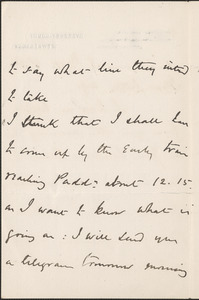 to say what line they intend
to take
I think that I shall have
to come up by the Early train
reaching Padd:n about 12.15.
as I want to know what is
going on: I will send you
a telegram tomorrow morning